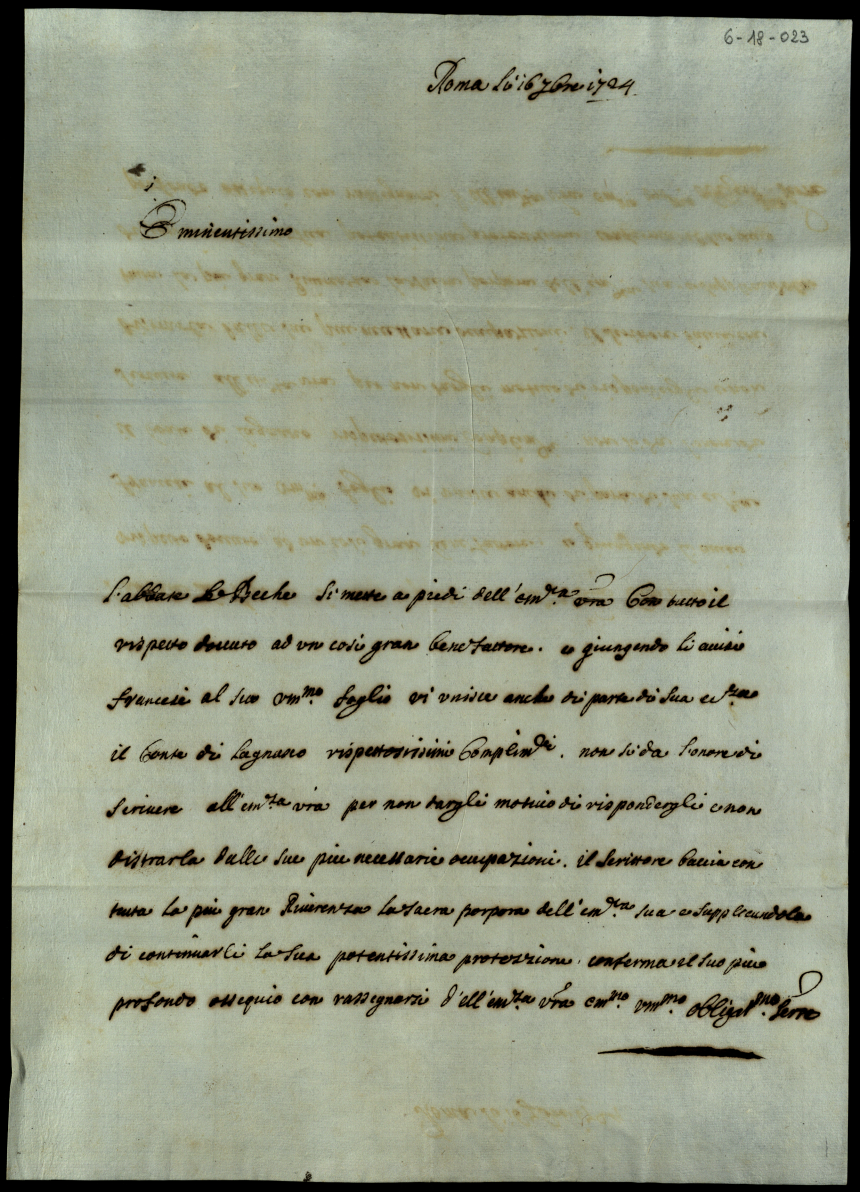 6-18-023
Roma li 16 7bre 1724
Eminentissimo
L'abbate Le Beche si mette a piedi dell'em.za vra Con tutto il
rispetto douuto ad un cosi gran benefattore. e giungendo li auisi
francesi al suo um.mo foglio vi unisce anche di parte di Sua ec.za
il Conte di Lagnasco rispettosissimi Complim.ti. non si da l'onore di
scriuere all'em.za vra per non dargli motiuo di rispondergli e non
distrarla dalle sue piu necessarie ocupazioni. il scrittore baccia con
tutta la piu gran Riuerenza la sacra porpora dell'em.za sua e supplicandola
di continuarli la sua potentissima protezzione, conferma il suo piu
profondo ossequio con rassegnarsi d'ell'em.za vra em.mo um.mo obligat.mo Serre